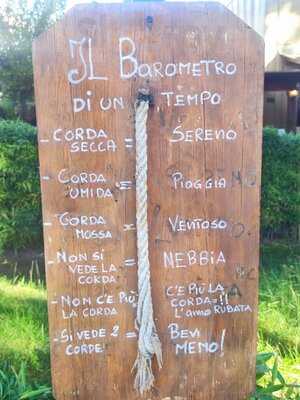 IL BAROMETRO
DI UN TEMPO
- CORDA SECCA = SERENO
- CORDA UMIDA = PIOGGIA
- CORDA MOSSA = VENTOSO
- NON SI VEDE LA CORDA = NEBBIA
- NON C'È PIÙ LA CORDA = C'È PIÙ LA CORDA = !! L'anno RUBATA
- SI VEDE 2 CORDE = BEVI MENO!